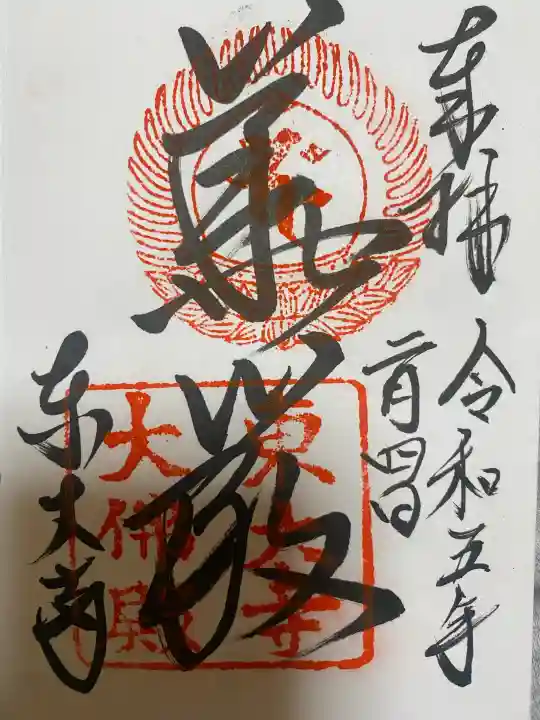 奉拝
令和五年
二月四日
華厳
東大寺
東大寺
大佛殿